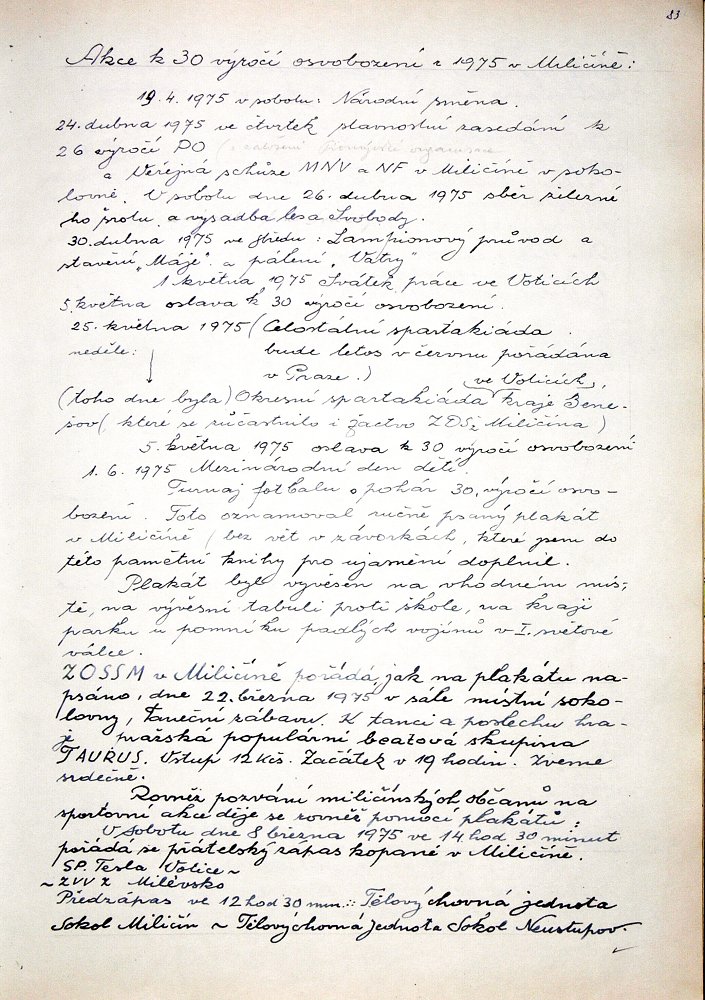 83
Akce k 30 výročí osvobození r 1975 v Miličíně:
19.4.1975 v sobotu: Národní směna.
24. dubna 1975 ve čtvrtek slavnostní zasedání k
26 výročí PO (k založení Pionýrské organisace
a Veřejná schůze MNV a NF v Miličíně v soko-
lovně. V sobotu dne 26. dubna 1975 sběr železné
ho šrotu a vysadba lesa Svobody.
30. dubna 1975 ve středu: Lampionový průvod a
stavění „Máje" a pálení „Vatry"
1 května 1975 Svátek práce ve Voticích
5. května oslava k 30 výročí osvobození.
25. května 1975 (Celostátní spartakiáda
neděle: bude letos v červnu pořádána
v Praze.)
ve Voticích,
(toho dne byla) Okresní spartakiáda kraje Bene-
šov (které se zúčastnilo i žactvo ZDŠ z Miličína)
5. května 1975 oslava k 30 výročí osvobození
1. 6. 1975 Mezinárodní den dětí.
Turnaj fotbalu o pohár 30. výročí osvo-
bození. Toto oznamoval ručně psaný plakát
v Miličíně (bez vět v závorkách, které jsem do
této pamětní knihy pro ujasnění doplnil.
Plakát byl vyvěšen na vhodném mís-
tě, na vývěsní tabuli proti škole, na kraji
parku u pomníku padlých vojínů v I. světové
válce.
ZOSSM v Miličíně pořádá, jak na plakátu na-
psáno, dne 22. března 1975 v sále místní soko-
lovny, Taneční zábavu. K tanci a poslechu hra-
je pražská populární beatová skupina
TAURUS. Vstup 12 Kčs. Začátek v 19 hodin. Zveme
srdečně.
Rovněž pozvání miličínských občanů na
sportovní akce děje se rovněž pomocí plakátů:
V sobotu dne 8 března 1975 ve 14 hod 30 minut
pořádá se přátelský zápas kopané v Miličíně.
SP. Tesla Votice ~
~ ZVVZ Milevsko
Předzápas ve 12 hod 30 min.: Tělovýchovná jednota
Sokol Miličín ~ Tělovýchovná jednota Sokol Neustupov.